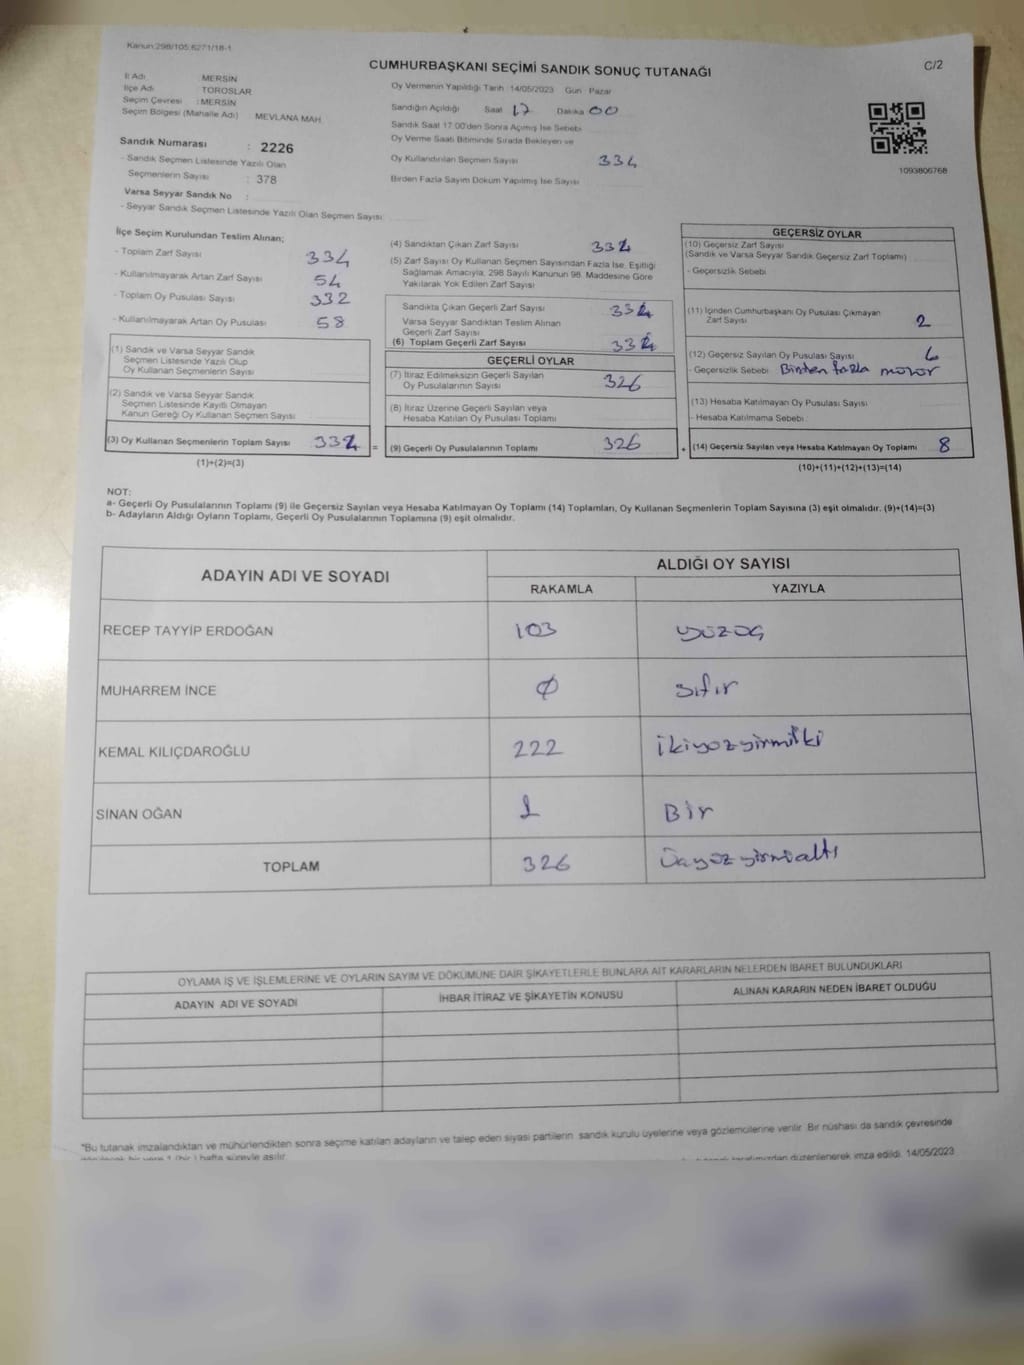 Kanun:298/105,6271/18-1
CUMHURBAŞKANI SEÇİMİ SANDIK SONUÇ TUTANAĞI
C/2
İl Adı : MERSİN
İlçe Adı : TOROSLAR
Seçim Çevresi : MERSİN
Seçim Bölgesi (Mahalle Adı) MEVLANA MAH.
Oy Vermenin Yapıldığı Tarih :14/05/2023 Gün : Pazar
Sandığın Açıldığı Saat 17 Dakika 00
Sandık Saat 17:00'den Sonra Açımış İse Sebebi
Oy Verme Saati Bitiminde Sırada Bekleyen ve
Oy Kullandırılan Seçmen Sayısı 334
Birden Fazla Sayım Döküm Yapılmış İse Sayısı
1093806768
Sandık Numarası : 2226
- Sandık Seçmen Listesinde Yazılı Olan
Seçmenlerin Sayısı : 378
Varsa Seyyar Sandık No :
- Seyyar Sandık Seçmen Listesinde Yazılı Olan Seçmen Sayısı:
İlçe Seçim Kurulundan Teslim Alınan;
- Toplam Zarf Sayısı 334
- Kullanılmayarak Artan Zarf Sayısı 54
- Toplam Oy Pusulası Sayısı 332
- Kullanılmayarak Artan Oy Pusulası 58
(1) Sandık ve Varsa Seyyar Sandık
Seçmen Listesinde Yazılı Olup
Oy Kullanan Seçmenlerin Sayısı
(2) Sandık ve Varsa Seyyar Sandık
Seçmen Listesinde Kayıtlı Olmayan
Kanun Gereği Oy Kullanan Seçmen Sayısı
(3) Oy Kullanan Seçmenlerin Toplam Sayısı 334 =
(1)+(2)=(3)
(4) Sandıktan Çıkan Zarf Sayısı 334
(5) Zarf Sayısı Oy Kullanan Seçmen Sayısından Fazla İse, Eşitliği
Sağlamak Amacıyla, 298 Sayılı Kanunun 98. Maddesine Göre
Yakılarak Yok Edilen Zarf Sayısı
Sandıkta Çıkan Geçerli Zarf Sayısı 334
Varsa Seyyar Sandıktan Teslim Alınan
Geçerli Zarf Sayısı
(6) Toplam Geçerli Zarf Sayısı 334
GEÇERLİ OYLAR
(7) İtiraz Edilmeksizin Geçerli Sayılan
Oy Pusulalarının Sayısı 326
(8) İtiraz Üzerine Geçerli Sayılan veya
Hesaba Katılan Oy Pusulası Toplamı
(9) Geçerli Oy Pusulalarının Toplamı 326 +
GEÇERSİZ OYLAR
(10) Geçersiz Zarf Sayısı
(Sandık ve Varsa Seyyar Sandık Geçersiz Zarf Toplamı)
- Geçersizlik Sebebi
(11) İçinden Cumhurbaşkanı Oy Pusulası Çıkmayan
Zarf Sayısı 2
(12) Geçersiz Sayılan Oy Pusulası Sayısı 6
- Geçersizlik Sebebi : Birden fazla mühür
(13) Hesaba Katılmayan Oy Pusulası Sayısı
- Hesaba Katılmama Sebebi :
(14) Geçersiz Sayılan veya Hesaba Katılmayan Oy Toplamı 8
(10)+(11)+(12)+(13)=(14)
NOT:
a- Geçerli Oy Pusulalarının Toplamı (9) ile Geçersiz Sayılan veya Hesaba Katılmayan Oy Toplamı (14) Toplamları, Oy Kullanan Seçmenlerin Toplam Sayısına (3) eşit olmalıdır. (9)+(14)=(3)
b- Adayların Aldığı Oyların Toplamı, Geçerli Oy Pusulalarının Toplamına (9) eşit olmalıdır.
ADAYIN ADI VE SOYADI
ALDIĞI OY SAYISI
RAKAMLA YAZIYLA
RECEP TAYYİP ERDOĞAN 103 yüzüç
MUHARREM İNCE 0 sıfır
KEMAL KILIÇDAROĞLU 222 ikiyüzyirmiiki
SİNAN OĞAN 1 Bir
TOPLAM 326 üçyüzyirmialtı
OYLAMA İŞ VE İŞLEMLERİNE VE OYLARIN SAYIM VE DÖKÜMÜNE DAİR ŞİKAYETLERLE BUNLARA AİT KARARLARIN NELERDEN İBARET BULUNDUKLARI
ADAYIN ADI VE SOYADI İHBAR İTİRAZ VE ŞİKAYETİN KONUSU ALINAN KARARIN NEDEN İBARET OLDUĞU
*Bu tutanak imzalandıktan ve mühürlendikten sonra seçime katılan adayların ve talep eden siyasi partilerin sandık kurulu üyelerine veya gözlemcilerine verilir. Bir nüshası da sandık çevresinde
görülecek bir yere 1 (bir) hafta süreyle asılır. tarafımızdan düzenlenerek imza edildi. 14/05/2023